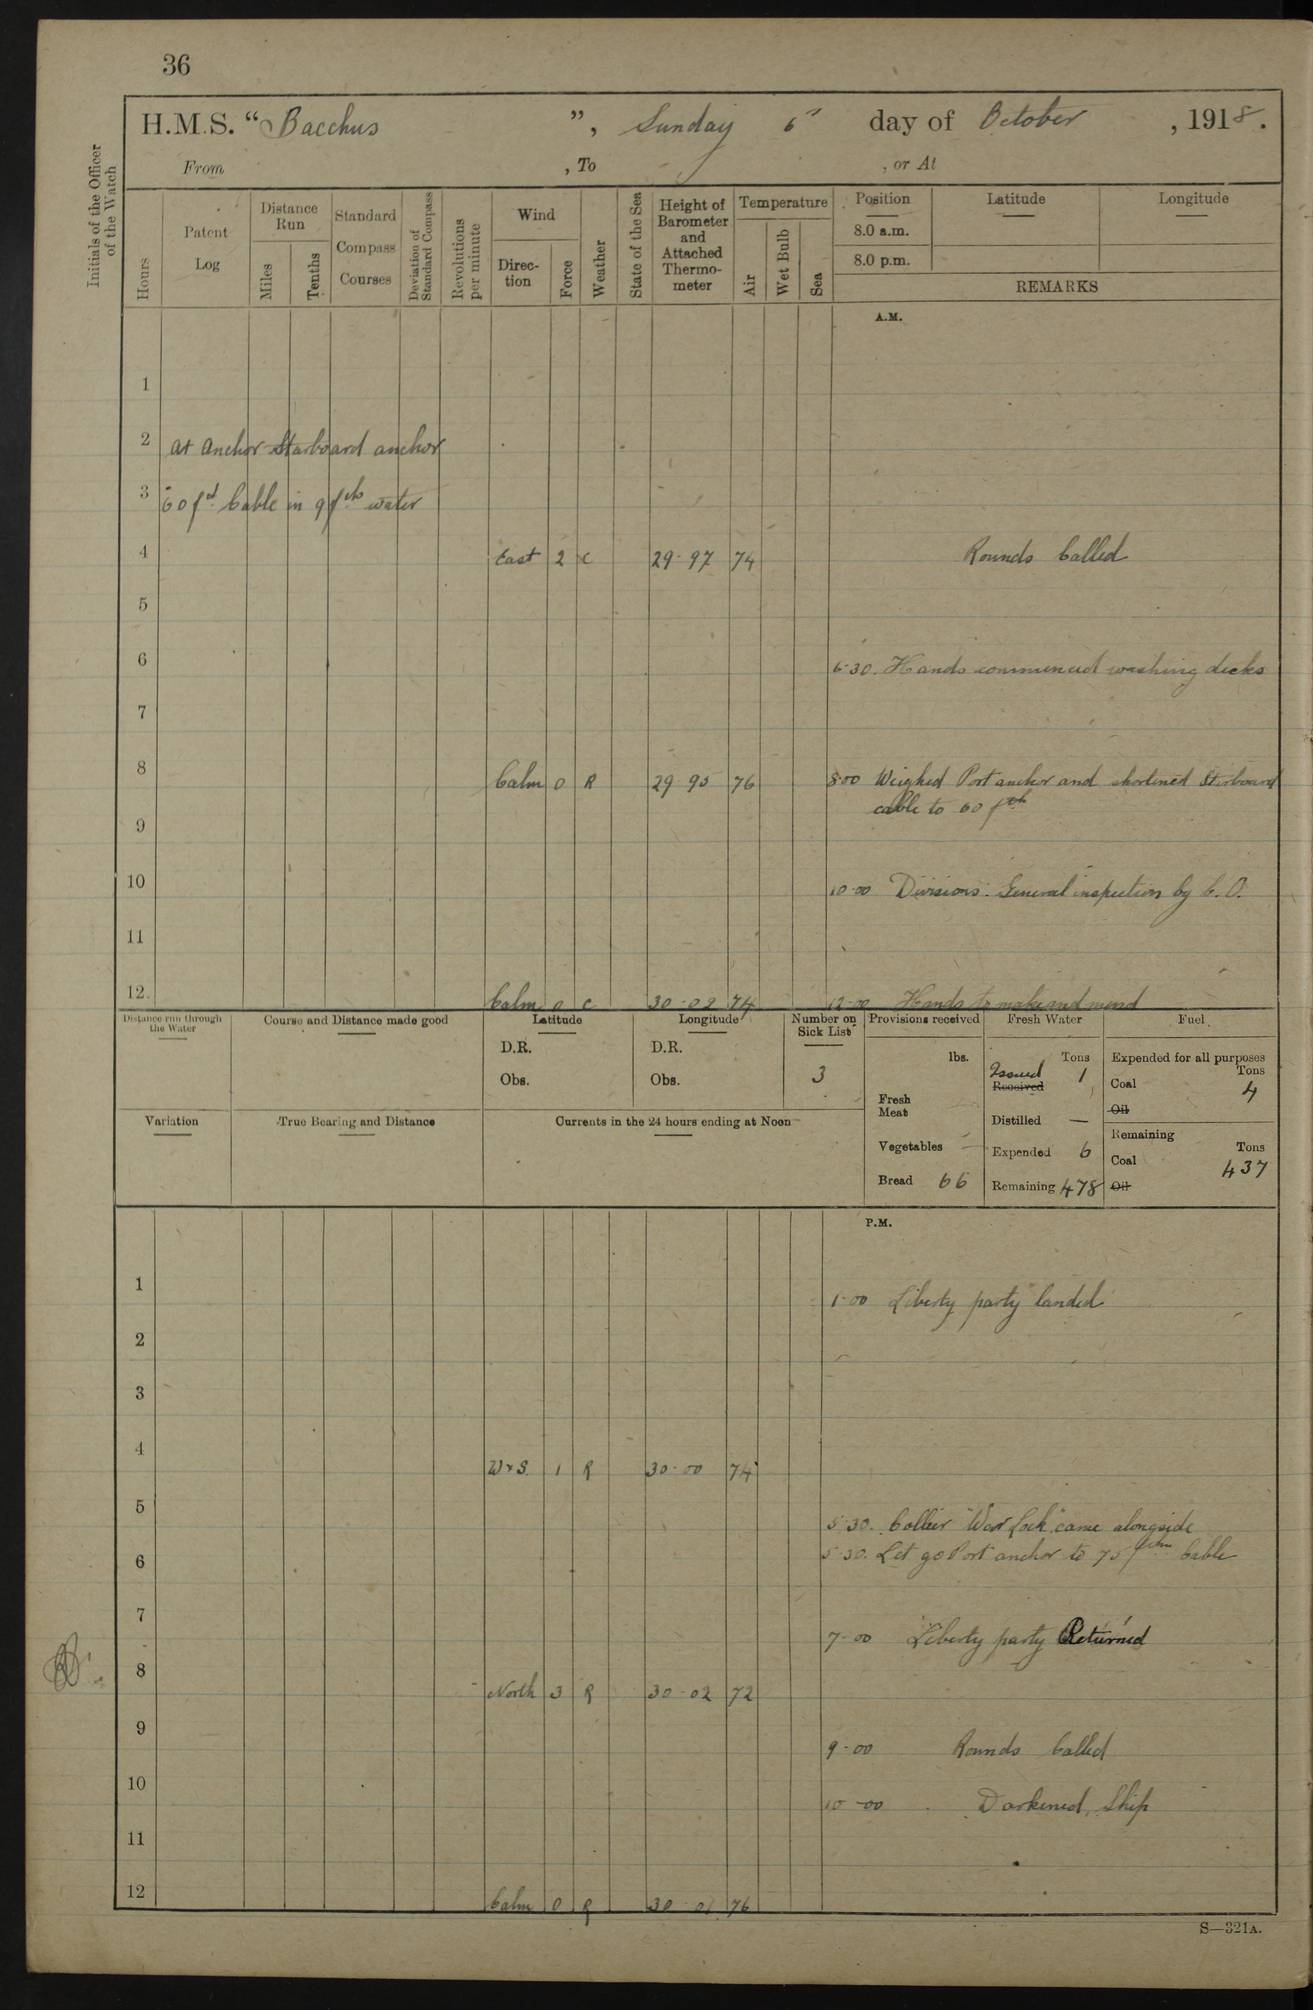 36
H.M.S. "Bacchus", Sunday 6th day of October, 1918.
From , To , or At
Initials of the Officer of the Watch
Hours
Patent Log
Distance Run
Miles
Tenths
Standard Compass Courses
Deviation of Standard Compass
Revolutions per minute
Wind
Direction
Force
Weather
State of the Sea
Height of Barometer and Attached Thermometer
Temperature
Air
Wet Bulb
Sea
Position
8.0 a.m.
8.0 p.m.
Latitude
Longitude
REMARKS
A.M.
1
2 At Anchor Starboard anchor
3 60 fd Cable in 9 fths water
4 East 2 C 29-97 74 Rounds Called
5
6 6-30. Hands commenced washing decks
7
8 Calm 0 R 29 95 76 8-00 Weighed Port anchor and shortened Starboard
cable to 60 fth
9
10 10-00 Divisions. General inspection by C.O.
11
12 Calm 0 C 30-02 74 12-00 Hands to make and mend
Distance run through the Water
Course and Distance made good
Latitude
D.R.
Obs.
Longitude
D.R.
Obs.
Number on Sick List
3
Provisions received
lbs.
Fresh Meat
Vegetables
Bread 66
Fresh Water
Tons
Issued 1
Received
Distilled —
Expended 6
Remaining 478
Fuel
Expended for all purposes
Tons
Coal 4
Oil
Remaining
Tons
Coal 437
Oil
Variation
True Bearing and Distance
Currents in the 24 hours ending at Noon
P.M.
1 1-00 Liberty party landed
2
3
4 W x S. 1 R 30-00 74
5 5-30. Collier "War Lock" came alongside
6 5-30. Let go Port anchor to 75 fthm Cable
7 7-00 Liberty party Returned
8 North 3 R 30-02 72
9 9-00 Rounds Called
10 10-00 Darkened Ship
11
12 Calm 0 R 30 01 76
S—321A.